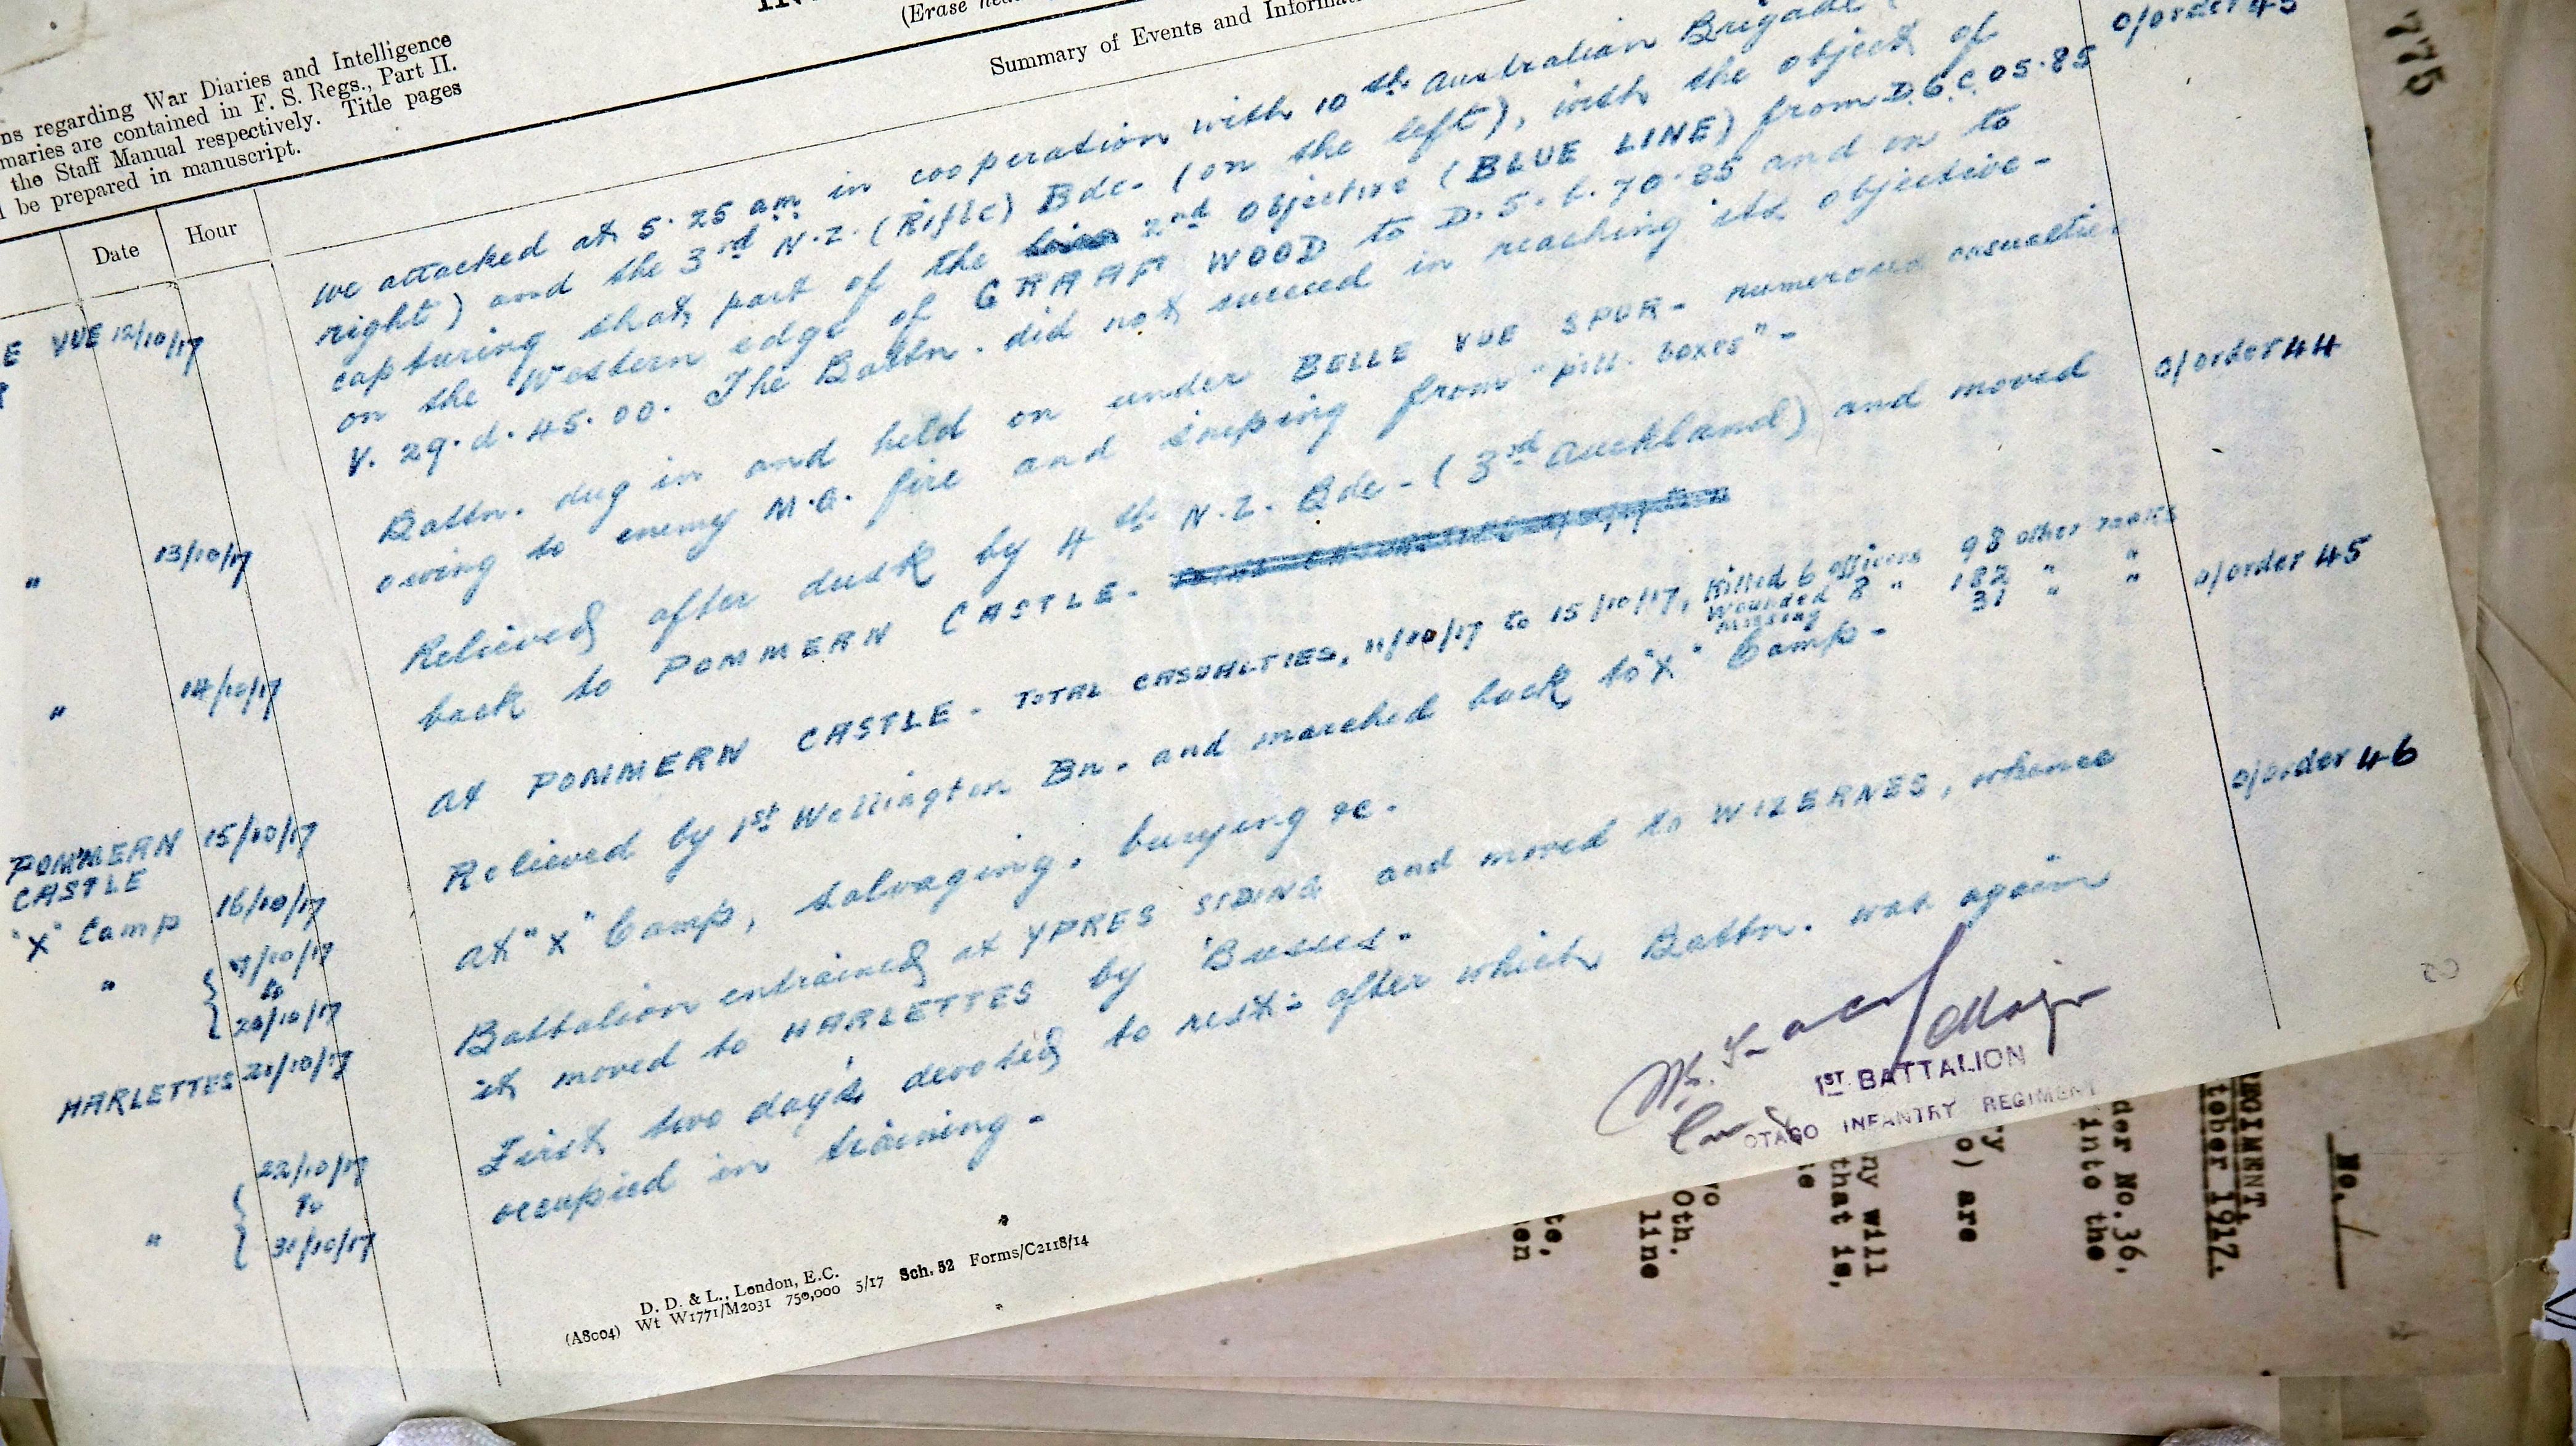 (Erase
Summary of Events and Informati
ns regarding War Diaries and Intelligence
maries are contained in F. S. Regs., Part II.
the Staff Manual respectively. Title pages
l be prepared in manuscript.
Date
Hour
o/order 45
E VUE 12/10/17
We attacked at 5.25 am in cooperation with 10th Australian Brigade (
right) and the 3rd N.Z. (Rifle) Bde. (on the left), with the object of
capturing that part of the 2nd Objective (BLUE LINE) from D.6.C.05.85
on the Western edge of GRAAF WOOD to D.5.b.70.85 and on to
V.29.d.45.00. The Battn. did not succeed in reaching its objective -
Battn. dug in and held on under BELLE VUE SPUR - numerous casualties
owing to enemy M.G. fire and sniping from "pill boxes" -
" 13/10/17
Relieved after dusk by 4th N.Z. Bde - (3rd Auckland) and moved
o/order 44
back to POMMERN CASTLE -
" 14/10/17
At POMMERN CASTLE - TOTAL CASUALTIES, 11/10/17 to 15/10/17, Killed 6 officers 98 other ranks
Wounded 8 " 182 " "
Missing 31 " "
POMMERN CASTLE 15/10/17
Relieved by 1st Wellington Bn. and marched back to "X" Camp -
o/order 45
"X" Camp 16/10/17
" 17/10/17 to 20/10/17
At "X" Camp, salvaging, burying &c.
HARLETTES 21/10/17
Battalion entrained at YPRES SIDING and moved to WIZERNES, whence
o/order 46
it moved to HARLETTES by Busses -
" 22/10/17 To 31/10/17
First two days devoted to rest - after which Battn. was again
occupied in training -
Major
1ST BATTALION
OTAGO INFANTRY REGIMENT
D. D. & L., London, E.C.
(A8004) Wt W1771/M2031 750,000 5/17 Sch. 52 Forms/C2118/14
775
No. 1
tober 1917.
der No.36,
into the
o) are
ny will
that is,
Oth.
line